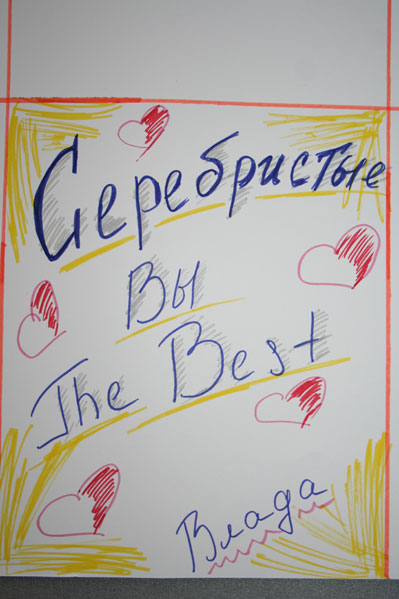 Серебристые
Вы
The Best
Влада